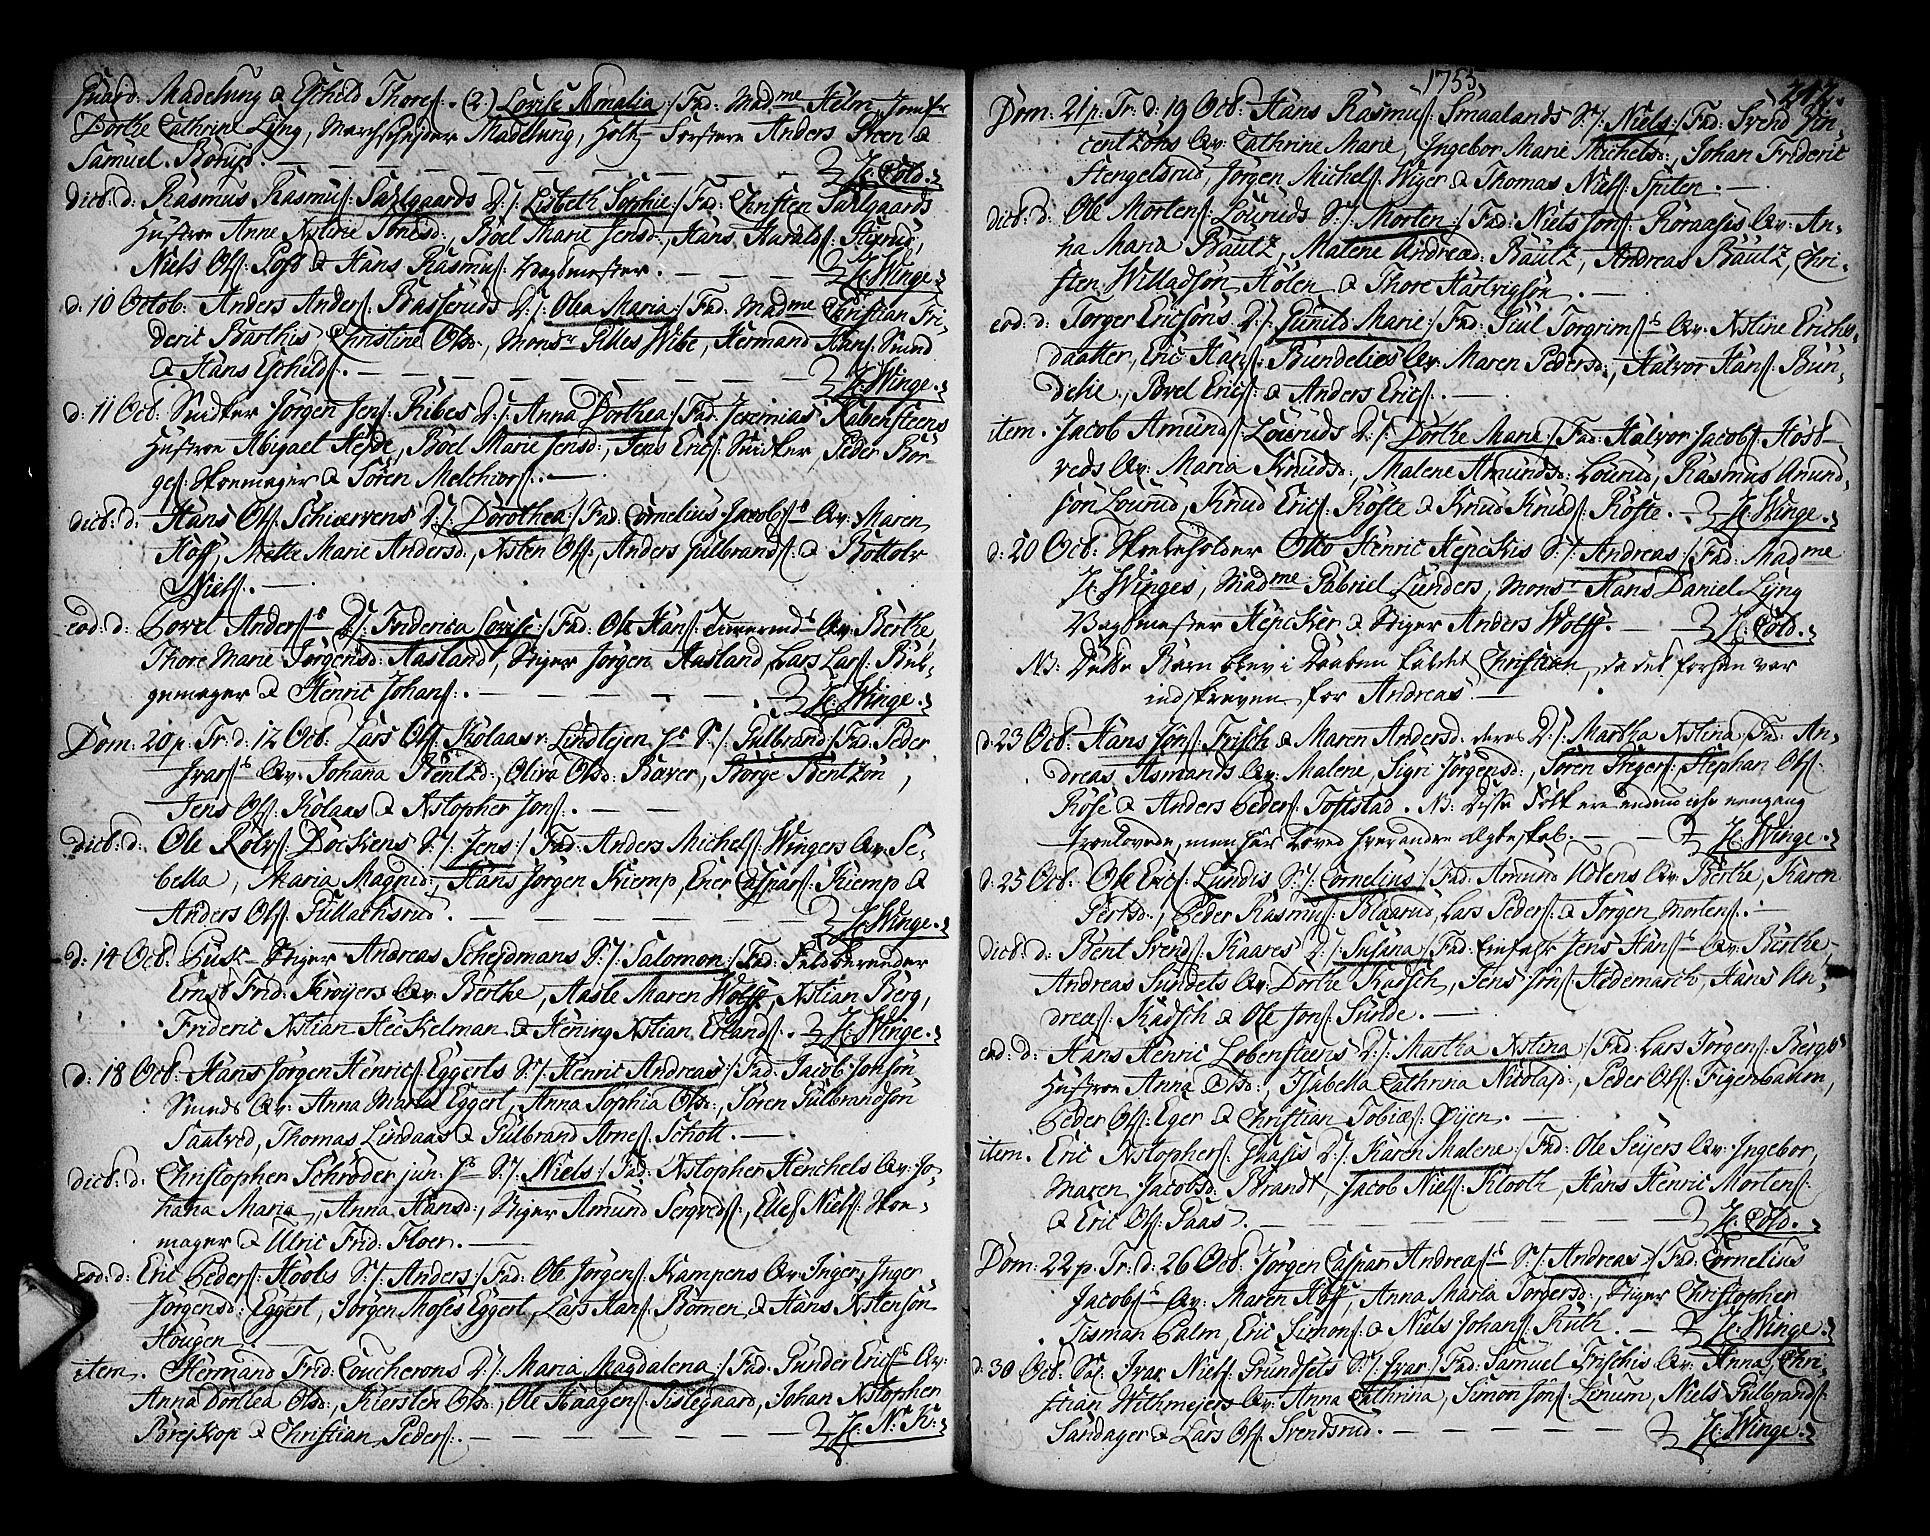 Guard. Madelung & Eschild Thores:. (2.) Lovise Amalia:/ Fad: Madme Helm, Jomfr
Dorthe Cathrine Lyng, Marchscheider Madelung, Holtz-Forster Anders Steen &
Samuel Börud. — He: Cold.
dicb: d: Rasmus Rasmus: Saxlgaards D:/: Lisbeth Sophie:/ Fad: Christen Saxlgaards
Hustroe Anne Xstine Jensd:, Böel Marie Jensd:, Hans Haralds:
Niels Ols: Post & Hans Rasmus: Vagtmester. — He: Winge.
d: 10 Octob: Anders Anders: Basserud's D:/: Olea Maria:/ Fad: Madme Christian Fri-
deric Barthis Christine Olsd:, Monsr Pilles Wibe, Hermand Hans: Smed
& Hans Eschilds:. — He: Winge.
d: 11 Oct: Snidker Jörgen Jens: Ribes D:/: Anna Dorthea:/ Fad: Jeremias Rabensteens
Hustroe Abigael Heyde, Böel Marie Jensd:, Jens Erics: Snidker, Peder Bör-
ges: Skoemager & Sören Melchiors:. —
dicb: d: Hans Ols: Schiærvens D:/: Dorothea:/ Fad: Cornelius Jacobs: Qv: Maren
Hoff, Mette Marie Andersd:, Xsten Ols:, Anders Gulbrands: & Bottolv
Niels:. —
eod: d: Povel Anders: D:/: Friderica Lovise:/ Fad: Ole Hans: Qv: Berthe,
Thore Marie Jörgensd: Aasland, Stiger Jörgen Aasland, Lars Lars: Bæl-
gemager & Henric Johans:. — He: Winge.
Dom: 20 p: Tr: d: 12 Oct: Lars Ols: Kolaas v: Lindtejen S:/: Gulbrand:/ Fad: Peder
Ivars: Qv: Johana Bentzd:, Oliva Olsd: Bæver, Börge Bentzön,
Jens Ols: Kolaas & Xstopher Jons:. —
dicb: d: Ole Rolvs: Dockens S:/: Jens:/ Fad: Anders Michels: Wingers Qv: Se-
bella, Maria Magnid:, Hans Jörgen Kiemp, Ener Caspars: Kiemp &
Anders Ols: Gullachsrud. — He: Winge.
d: 14 Oct: Stiger Andreas Scheidmans S:/: Salomon:/ Fad: Feldbereder
Ernst Frid: Kröyers Qv: Berthe, Aasle Maren Wolff, Xstian Berg,
Frideric Xstian Heckelman & Hening Xstian Erlands:. He: Winge.
d: 18 Oct: Hans Jörgen Henrics: Eggerts S:/: Henric Andreas:/ Fad: Jacob Jonsön
Smeds Qv: Anna Maria Eggert, Anna Sophia Olsd:, Sören Gulbrandsön
Saatved, Thomas Lindaas & Gulbrand Arnes: Schott. —
dicb: d: Christopher Schröder jun: S:/: Niels:/ Fad: Xstopher Henchels Qv: Jo-
hana Maria, Anna Hansd:, Stiger Amund Sergveds:, Ellef Niels: Skoe-
mager & Ulric Frid: Floer. —
eod: d: Eric Peders: Hoobs S:/: Anders:/ Fad: Ole Jörgens: Kampens Qv: Inger, Inger
Jörgensd: Eggert, Jörgen Moses Eggert, Lars Hans: Bömen & Hans Xstensön
Hougen. —
item. Hermand Frid: Coucherons D:/: Maria Magdalena:/ Fad: Gunder Erics: Qv:
Anna Dorthea Olsd:, Kiersten Olsd:, Ole Haagens: Sislegaard, Johan Xstopher
Brejskop & Christian Peders:. — He: N: K:
1753
212.
Dom: 21 p: Tr: d: 19 Oct: Hans Rasmus: Smaalands S:/: Niels:/ Fad: Svend Vin-
centzöns Qv: Cathrine Marie, Ingebor Marie Michelsd:, Johan Frideric
Stengelsrud, Jörgen Michels: Wiger & Thomas Niels: Spiten. —
dicb: d: Ole Mortens: Lourud's S:/: Morten:/ Fad: Niels Jons: Koraasis Qv: An-
na Maria Bautz, Malene Andread: Bautz, Andreas Bautz, Chri-
sten Willadsön Holen & Thore Hartvigsön. —
eod: d: Torger Ericsöns D:/: Gunild Marie:/ Fad: Giul Torgrims: Qv: Xstine Erichs-
daatter, Eric Hans: Bundelies Qv: Maren Pedersd:, Halvor Hans: Bun-
delie, Povel Erics: & Anders Erics:. —
item. Jacob Amunds: Louruds D:/: Dorthe Marie:/ Fad: Halvor Jacobs: Host-
veds Qv: Maria Knudsd:, Malene Amundsd: Lourud, Rasmus Amund-
sön Lourud, Knud Erics: Roste & Knud Knuds: Roste. — He: Winge.
d: 20 Oct: Otto Henric Hepickis S:/: Andreas:/ Fad: Madme
He: Winges, Madme Gabriel Lunders, Monsr Hans Daniel Lyng
Vagtmester Hepicker & Stiger Anders Wolff. — He: Cold.
NB: Dette Barn blev i Daaben kaldet Christian, da det forhen var
indskreven for Andreas. —
d: 23 Oct: Hans Jons: Frisch & Maren Andersd: deres D:/: Martha Xstina:/ Fad: An-
dreas Asmands Qv: Malene, Sigri Jörgensd:, Sören Gregers:, Stephan Ols:
Rose & Anders Peders: Toftstad. NB: Disse Folk ere endnu ikke nengang
troelovede, men har loved hverandre Ægteskab. — He: Winge.
d: 25 Oct: Ole Erics: Lundis S:/: Cornelius:/ Fad: Amund Holens Qv: Berthe, Karen
Gertsd:, Peder Rasmus: Blaarud, Lars Peders: & Jörgen Mortens:. —
dicb: d: Bent Svends: Kaares D:/: Susana:/ Fad: Jens Hans: Qv: Birthe,
Andreas Sundets Qv: Dorthe Kadsch, Jens Jons: Hedemarch, Hans An-
dreæs: Kadsch & Ole Jons: Sunde. —
eod: d: Hans Henric Lobensteens D:/: Martha Xstina:/ Fad: Lars Jörgens: Bergs
Hustroe Anna Olsd:, Isabella Cathrina Nicolajd:, Peder Ols: Figenbaum,
Peder Ols: Eger & Christian Tobiæs: Öijen. —
item. Eric Xstophers: Shasis D:/: Karen Malene:/ Fad: Ole Seijers Qv: Ingebor,
Maren Jacobsd: Brandt, Jacob Niels: Klooth, Hans Henric Mortens:
& Eric Ols: Paas. — He: Cold.
Dom: 22 p: Tr: d: 26 Oct: Jörgen Caspar Andreas: S:/: Andreas:/ Fad: Cornelius
Jacobs: Qv: Maren Hoff, Anna Marta Torgersd:, Stiger Christopher
Tisman Palm, Eric Simons: & Niels Johans: Ruth. — He: Winge.
d: 30 Oct: Sal: Ivar Niels: Grundsets S:/: Ivar:/ Fad: Samuel Frischis Qv: Anna, Chri-
stian Withmejers Qv: Anna Cathrina, Simon Jons: Lenum, Niels Gulbrands:
Sandager & Lars Ols: Svendsrud. — He: Winge.